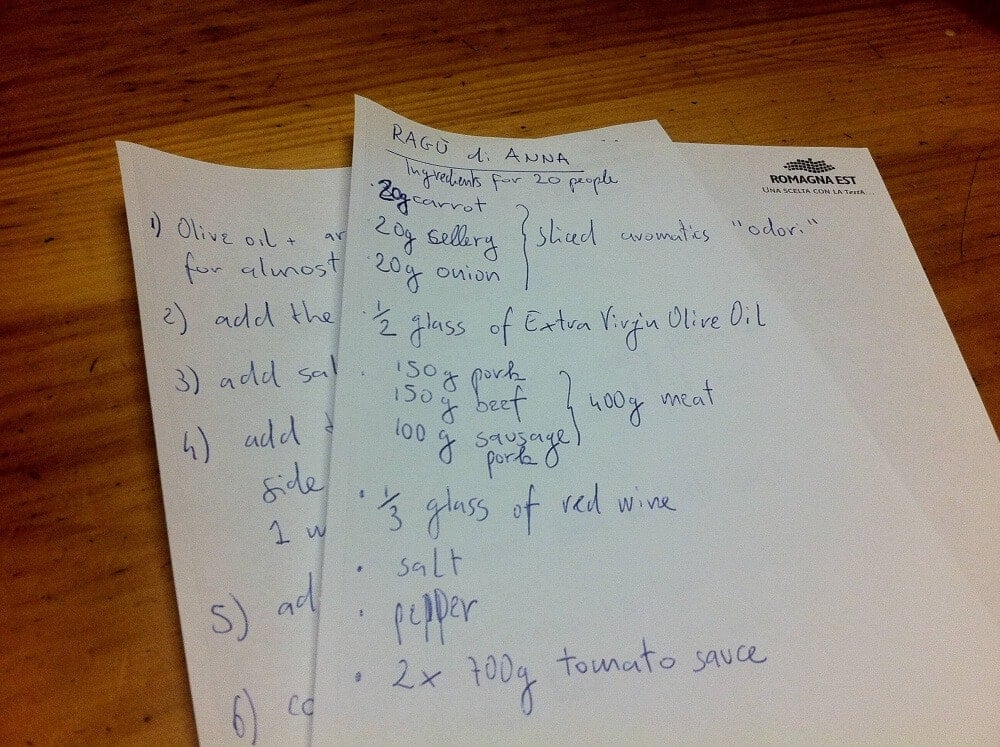 RAGÙ di ANNA
Ingredients for 20 people
20g carrot
20g sellery
20g onion
sliced aromatics "odori"
1/2 glass of Extra Virgin Olive Oil
150g pork
150g beef
100g sausage
pork
400g meat
1/3 glass of red wine
salt
pepper
2x 700g tomato sauce
ROMAGNA EST
UNA SCELTA CON LA TESTA...
1) Olive oil +
for almost
2) add the
3) add
4) add
side
1
5)
6)